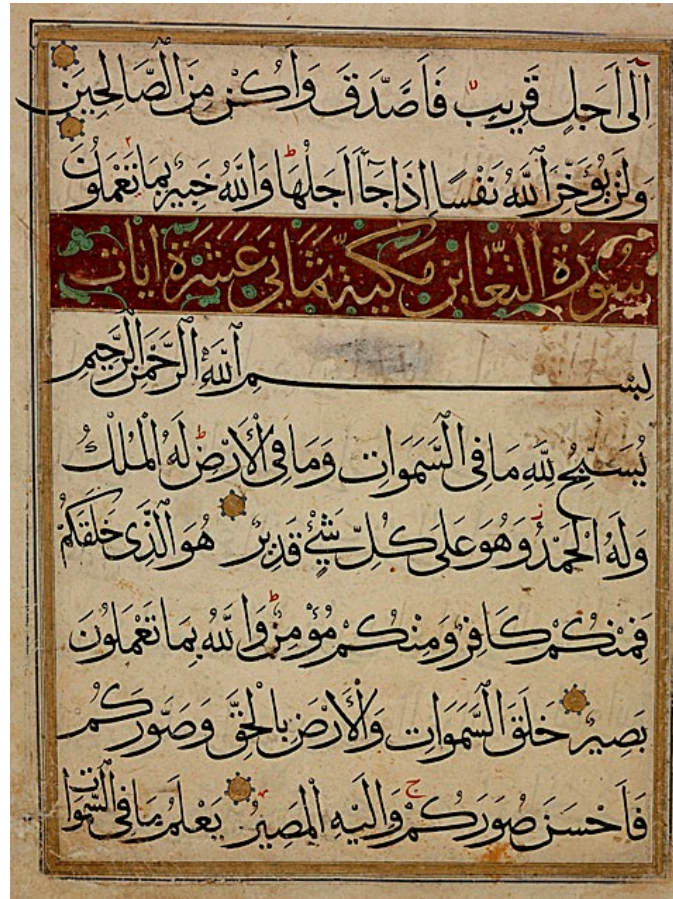 اِلٰى اَجَلٍ قَرِيبٍ فَاَصَّدَّقَ وَاَكُنْ مِنَ الصَّالِحِينَ
وَلَنْ يُؤَخِّرَ اللّٰهُ نَفْسًا اِذَا جَآءَ اَجَلُهَا ط وَاللّٰهُ خَبِيرٌ بِمَا تَعْمَلُونَ
سُورَةُ التَّغَابُنِ مَكِّيَّةٌ ثَمَانِىَ عَشَرَةَ اٰيَات
بِسْمِ اللّٰهِ الرَّحْمٰنِ الرَّحِيمِ
يُسَبِّحُ لِلّٰهِ مَا فِى السَّمٰوَاتِ وَمَا فِى الْاَرْضِ ط لَهُ الْمُلْكُ
وَلَهُ الْحَمْدُ ز وَهُوَ عَلٰى كُلِّ شَىْءٍ قَدِيرٌ هُوَ الَّذِى خَلَقَكُمْ
فَمِنْكُمْ كَافِرٌ وَمِنْكُمْ مُؤْمِنٌ ط وَاللّٰهُ بِمَا تَعْمَلُونَ
بَصِيرٌ خَلَقَ السَّمٰوَاتِ وَالْاَرْضَ بِالْحَقِّ وَصَوَّرَكُمْ
فَاَحْسَنَ صُوَرَكُمْ ج وَاِلَيْهِ الْمَصِيرُ يَعْلَمُ مَا فِى السَّمٰوَاتِ